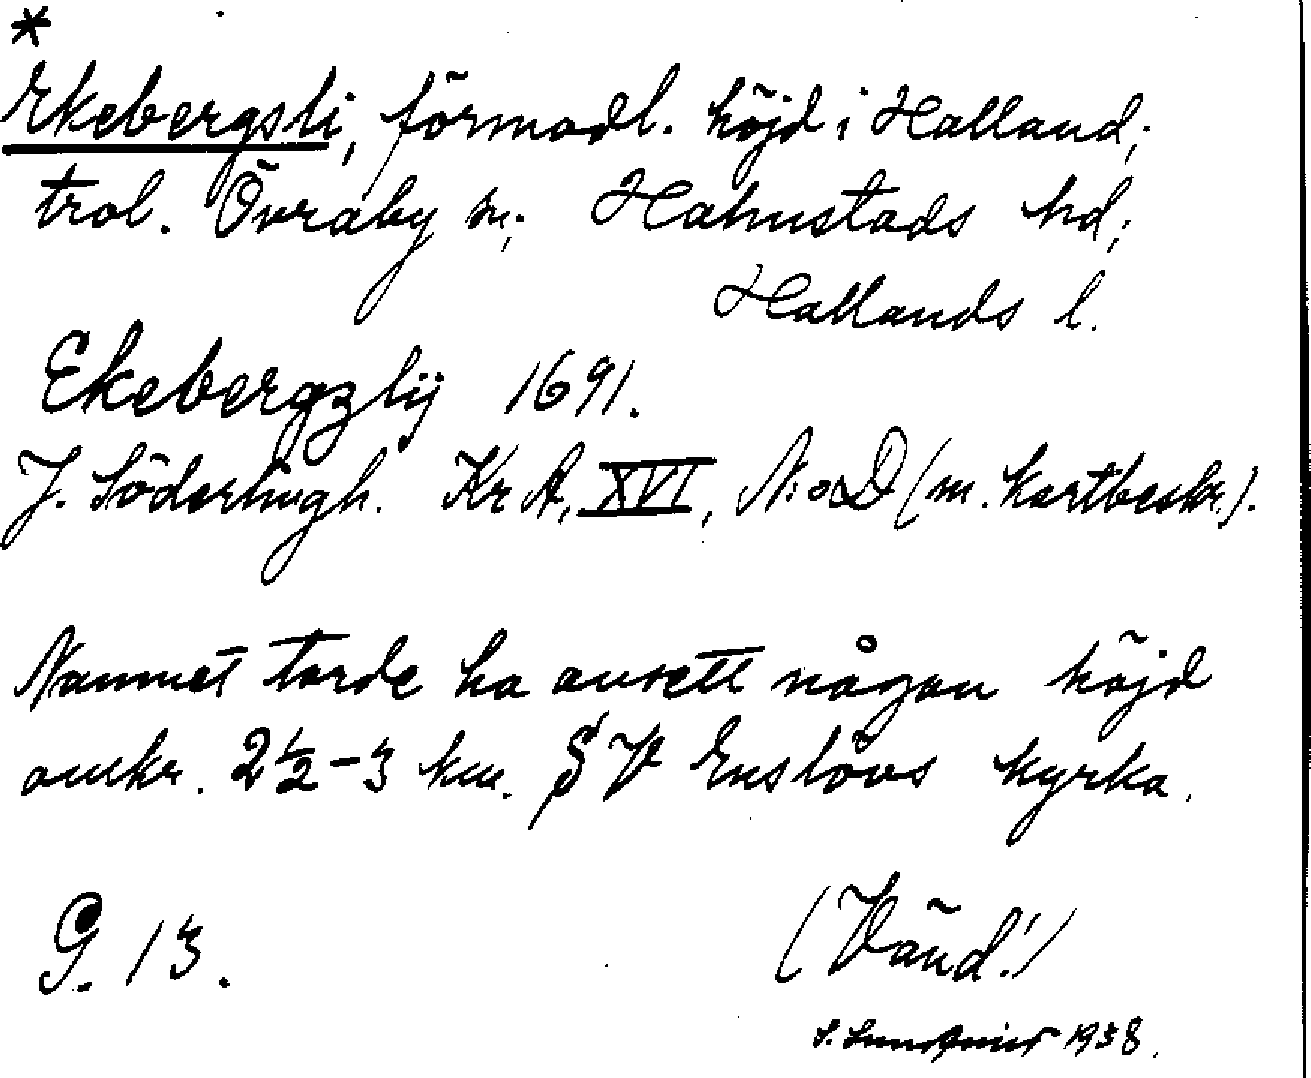 *
Ekebergsli, förmodl. höjd i Halland;
trol. Övraby sn; Halmstads hd;
Hallands l.
Ekebergzlij 1691.
J. Söderlingh. KrA, XVI, N:o D (m. kartbeskr.).
Namnet torde ha avsett någon höjd
omkr. 2½-3 km. SV Enslövs kyrka.
G. 13.
(Vänd!)
S. Sundqvist 1938.